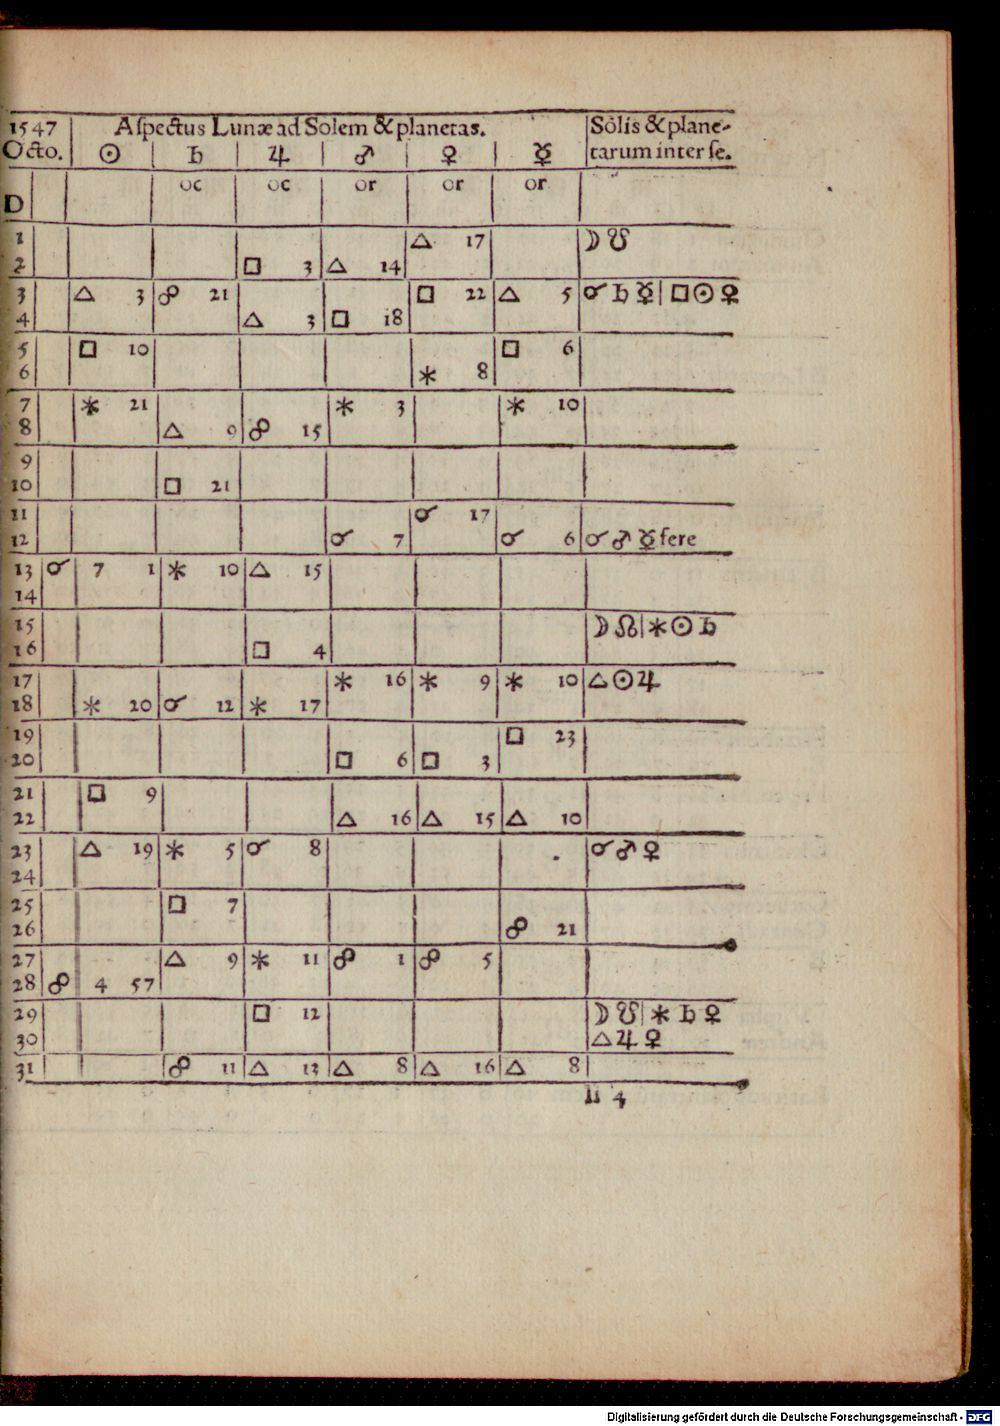 1547 Aſpectus Lunæ ad Solem & planetas. Solis & plane-
Octo. ☉ ♄ ♃ ♂ ♀ ☿ tarum inter ſe.
oc oc or or or
D
1 △ 17 ☽ ☋
2 □ 3 △ 14
3 △ 3 ☍ 21 □ 22 △ 5 ☌ ♄ ☿ | □ ☉ ♀
4 △ 3 □ 18
5 □ 10 □ 6
6 ⚹ 8
7 ⚹ 21 ⚹ 3 ⚹ 10
8 △ 9 ☍ 15
9
10 □ 21
11 ☌ 17
12 ☌ 7 ☌ 6 ☌ ♂ ☿ fere
13 ☌ 7 1 ⚹ 10 △ 15
14
15 ☽ ☊ | ⚹ ☉ ♄
16 □ 4
17 ⚹ 16 ⚹ 9 ⚹ 10 △ ☉ ♃
18 ⚹ 20 ☌ 12 ⚹ 17
19 □ 23
20 □ 6 □ 3
21 □ 9
22 △ 16 △ 15 △ 10
23 △ 19 ⚹ 5 ☌ 8 ☌ ♂ ♀
24
25 □ 7
26 ☍ 21
27 △ 9 ⚹ 11 ☍ 1 ☍ 5
28 ☍ 4 57
29 □ 12 ☽ ☋ | ⚹ ♄ ♀
30 △ ♃ ♀
31 ☍ 11 △ 13 △ 8 △ 16 △ 8
Digitalisierung gefördert durch die Deutsche Forschungsgemeinschaft - DFG